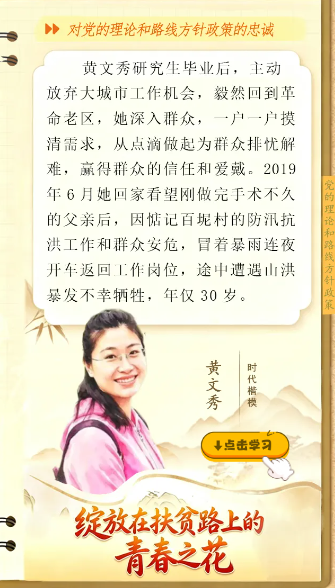 对党的理论和路线方针政策的忠诚
黄文秀研究生毕业后，主动
放弃大城市工作机会，毅然回到革
命老区，她深入群众，一户一户摸
清需求，从点滴做起为群众排忧解
难，赢得群众的信任和爱戴。2019
年 6 月她回家看望刚做完手术不久
的父亲后，因惦记百坭村的防汛抗
洪工作和群众安危，冒着暴雨连夜
开车返回工作岗位，途中遭遇山洪
暴发不幸牺牲，年仅 30 岁。
党的理论和路线方针政策
黄文秀
时代楷模
点击学习
绽放在扶贫路上的
青春之花